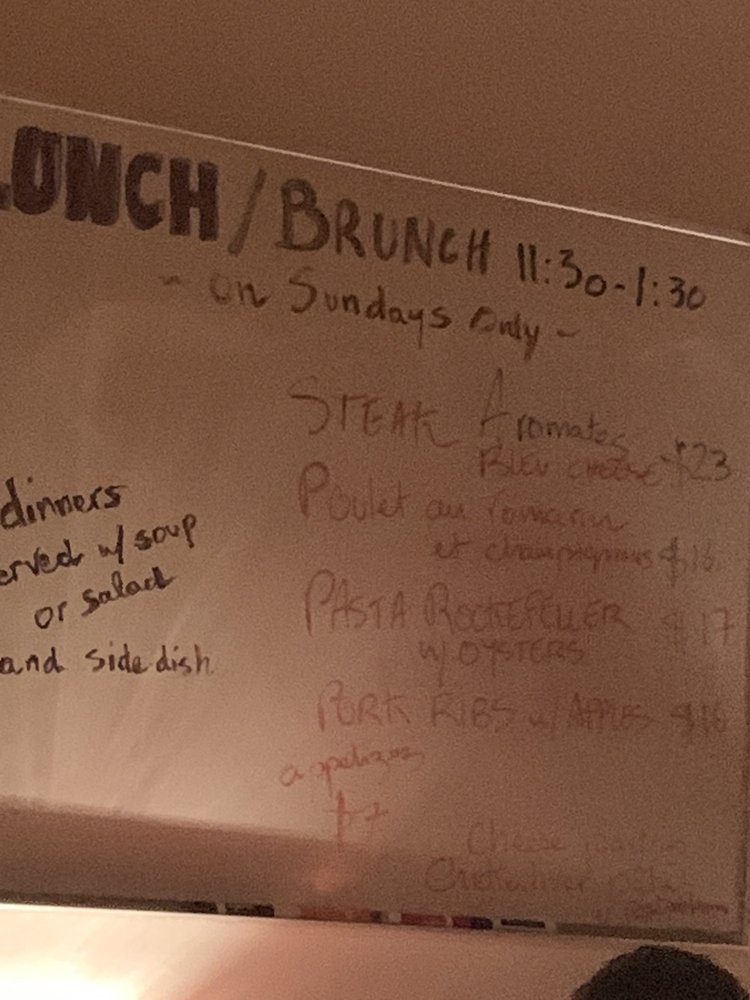 LUNCH / BRUNCH 11:30-1:30
~ on Sundays Only ~
STEAK Aromates
BLEU CHEESE $23
Poulet au romarin
et champignons $16
PASTA ROCKEFELLER $17
w/ OYSTERS
PORK RIBS w/ APPLES $16
dinners
erved w/ soup
or salad
and side dish
appetizers
$7
Cheese